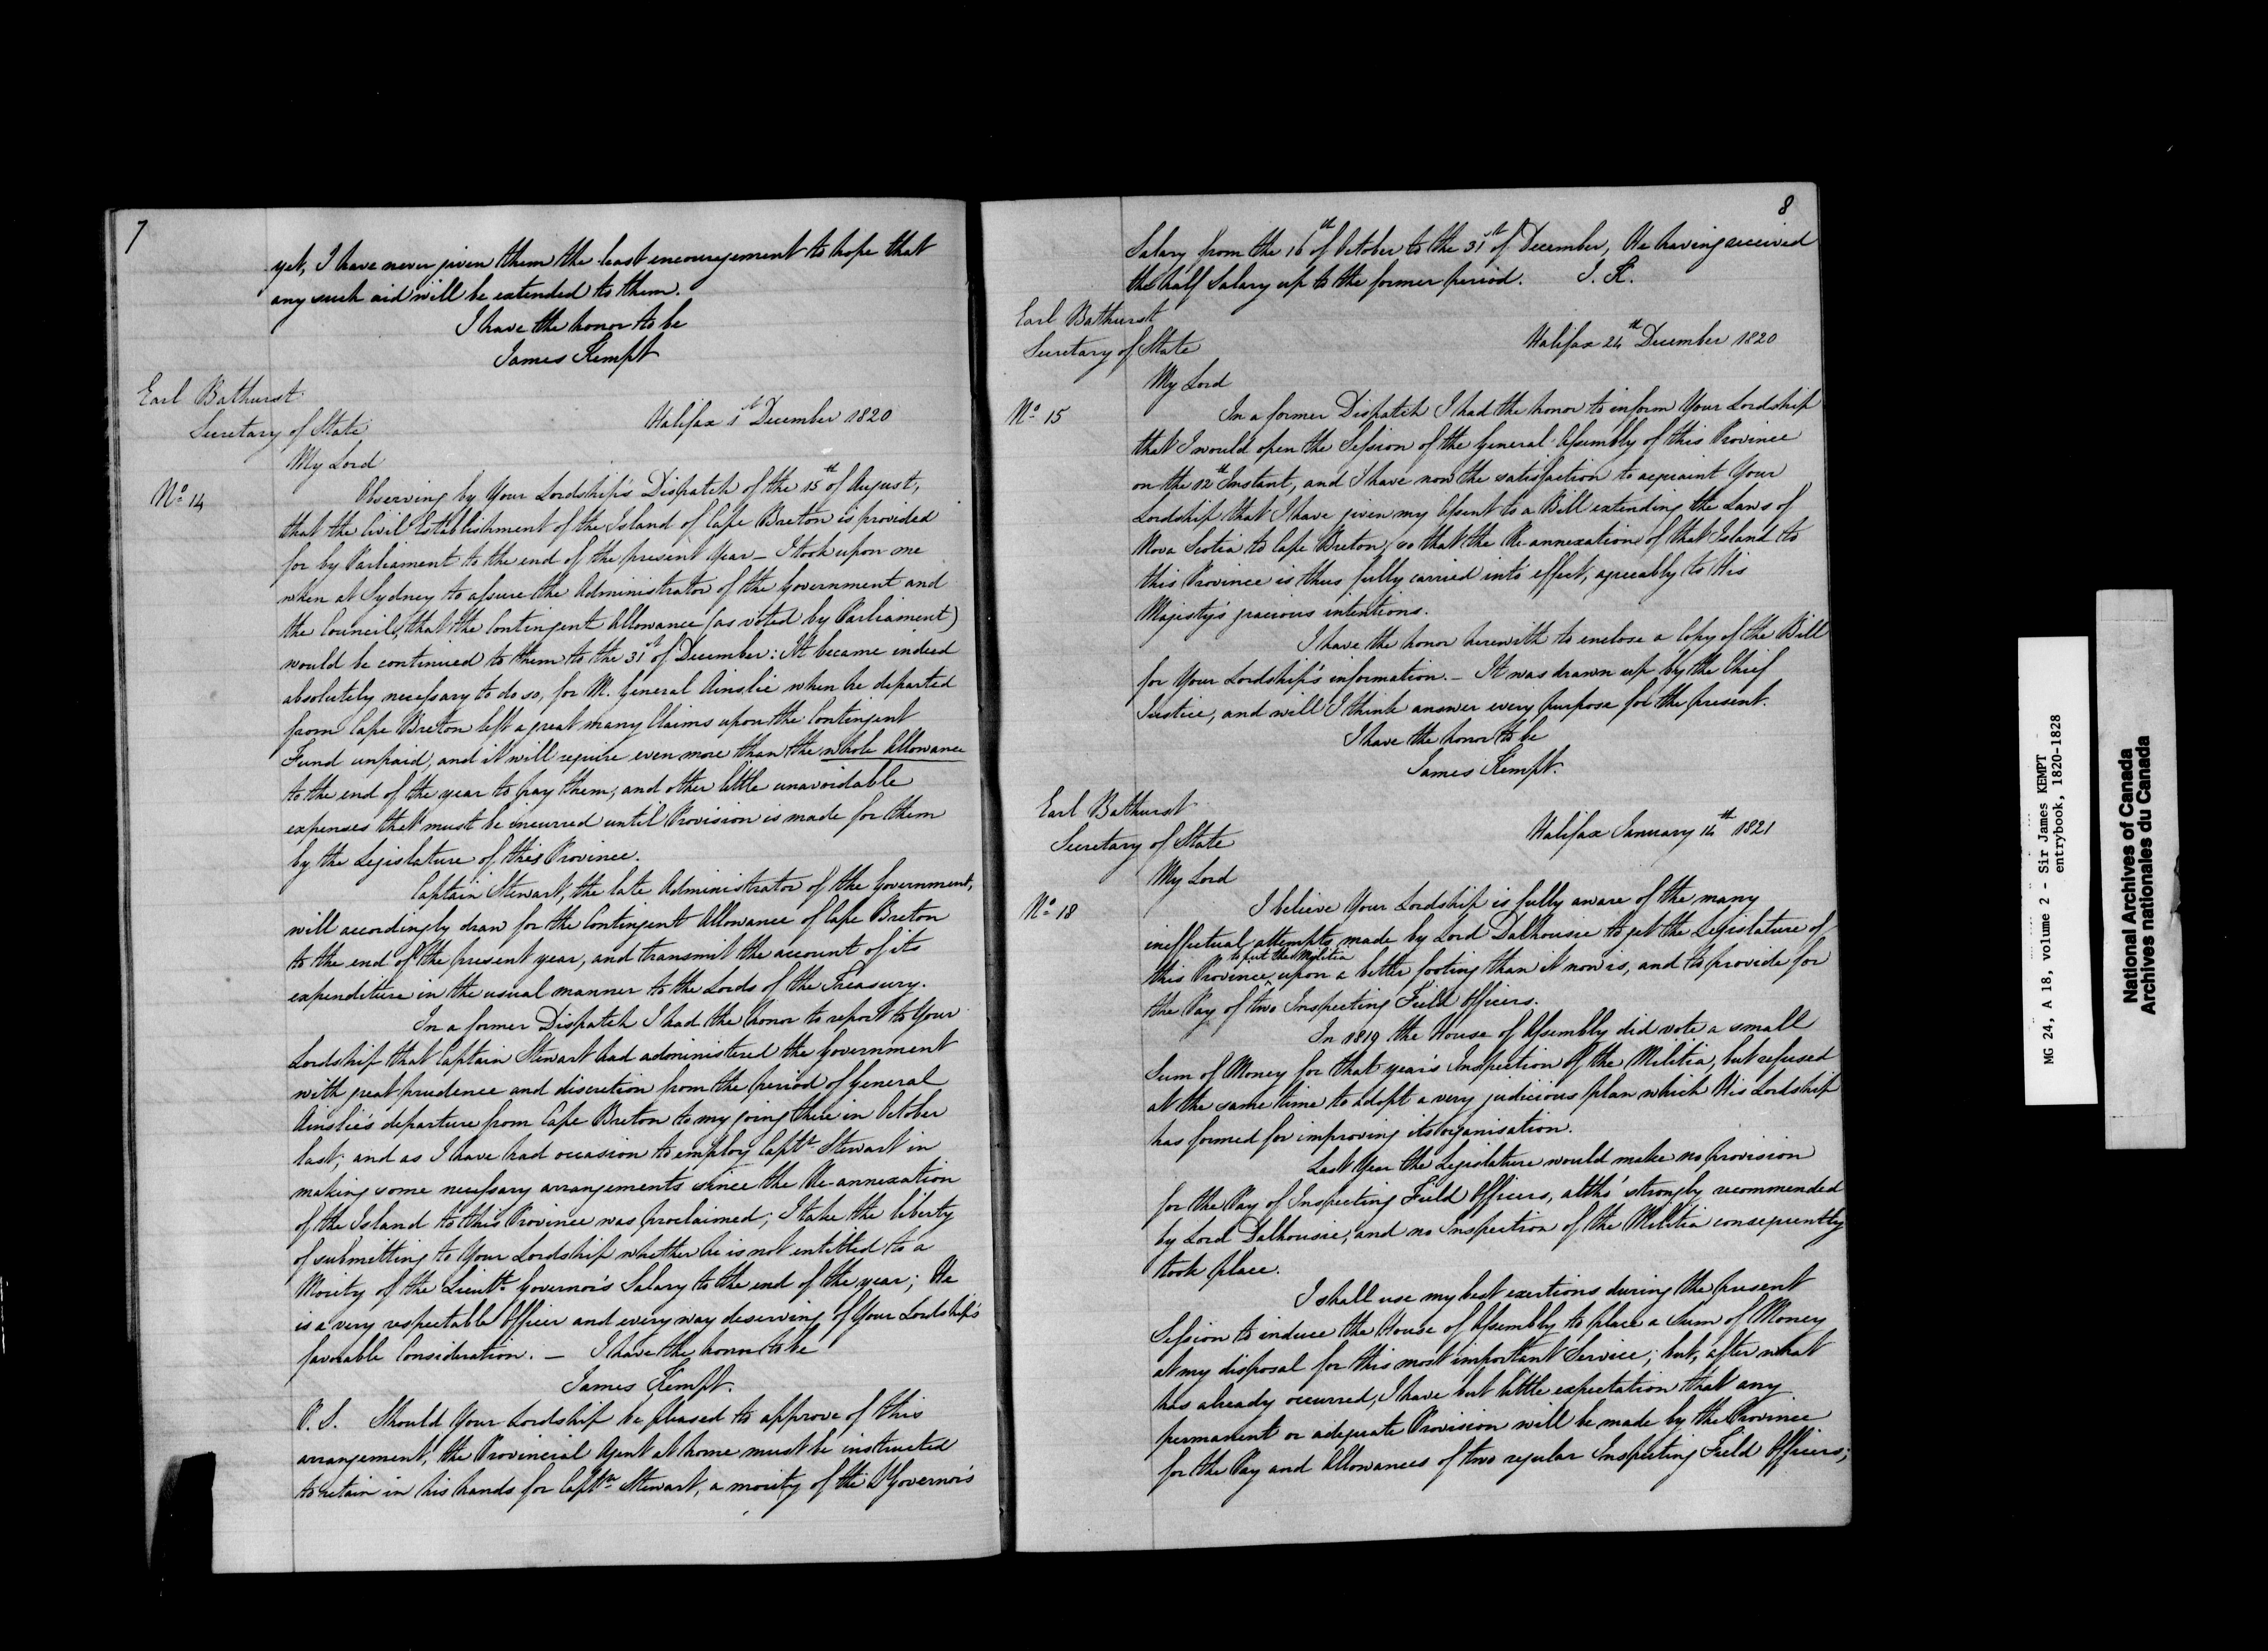 7
yet, I have never given them the least encouragement to hope that
any such aid will be extended to them.
I have the honor to be
James Kempt
Earl Bathurst
Secretary of State
Halifax 1st December 1820
My Lord
No 14
Observing by Your Lordship's Dispatch of the 15th of August,
that the Civil Establishment of the Island of Cape Breton is provided
for by Parliament to the end of the present Year – I took upon me
when at Sydney to assure the Administrator of the Government and
the Council, that the Contingent Allowance (as voted by Parliament)
would be continued to them to the 31st of December: It became indeed
absolutely necessary to do so, for M. General Ainslie when he departed
from Cape Breton left a great many Claims upon the Contingent
Fund unpaid, and it will require even more than the whole Allowance
to the end of the year to pay them, and other little unavoidable
expenses that must be incurred until Provision is made for them
by the Legislature of this Province.
Captain Stewart, the late Administrator of the Government,
will accordingly draw for the Contingent Allowance of Cape Breton
to the end of the present year, and transmit the account of its
expenditure in the usual manner to the Lords of the Treasury.
In a former Dispatch I had the honor to report to Your
Lordship that Captain Stewart had administered the Government
with great prudence and discretion from the period of General
Ainslie's departure from Cape Breton to my going there in October
last; and as I have had occasion to employ Captn Stewart in
making some necessary arrangements since the Re-annexation
of the Island to this Province was proclaimed; I take the liberty
of submitting to Your Lordship whether he is not entitled to a
Moiety of the Lieutt Governor's Salary to the end of the year; He
is a very respectable Officer and every way deserving of Your Lordship's
favorable Consideration. – I have the honor to be
James Kempt.
P.S. Should Your Lordship be pleased to approve of this
arrangement, the Provincial Agent at home must be instructed
to retain in his hands for Captn Stewart, a moiety of the Lt Governor's
8
Salary from the 16th of October to the 31st of December, He having received
the half Salary up to the former period. J. K.
Earl Bathurst
Secretary of State
Halifax 24th December 1820
My Lord
No 15
In a former Dispatch I had the honor to inform Your Lordship
that I would open the Session of the General Assembly of this Province
on the 12th Instant, and I have now the satisfaction to acquaint Your
Lordship that I have given my Assent to a Bill extending the Laws of
Nova Scotia to Cape Breton, so that the Re-annexation of that Island to
this Province is thus fully carried into effect, agreeably to His
Majesty's gracious intentions.
I have the honor herewith to enclose a Copy of the Bill
for Your Lordship's information. – It was drawn up by the Chief
Justice, and will I think answer every purpose for the present.
I have the honor to be
James Kempt.
Earl Bathurst
Secretary of State
Halifax January 14th 1821
My Lord
No 18
I believe Your Lordship is fully aware of the many
ineffectual attempts made by Lord Dalhousie to get the Legislature of
this Province to put the Militia upon a better footing than it now is, and to provide for
the Pay of two Inspecting Field Officers.
In 1819 the House of Assembly did vote a small
Sum of Money for that year's Inspection of the Militia, but refused
at the same time to adopt a very judicious plan which His Lordship
has formed for improving its organisation.
Last Year the Legislature would make no provision
for the Pay of Inspecting Field Officers, altho' strongly recommended
by Lord Dalhousie, and no Inspection of the Militia consequently
took place.
I shall use my best exertions during the present
Session to induce the House of Assembly to place a Sum of Money
at my disposal for this most important Service; but, after what
has already occurred, I have but little expectation that any
permanent or adequate Provision will be made by the Province
for the Pay and Allowances of two regular Inspecting Field Officers;
MG 24, A 18, volume 2 - Sir James KEMPT
entrybook, 1820-1828
National Archives of Canada
Archives nationales du Canada